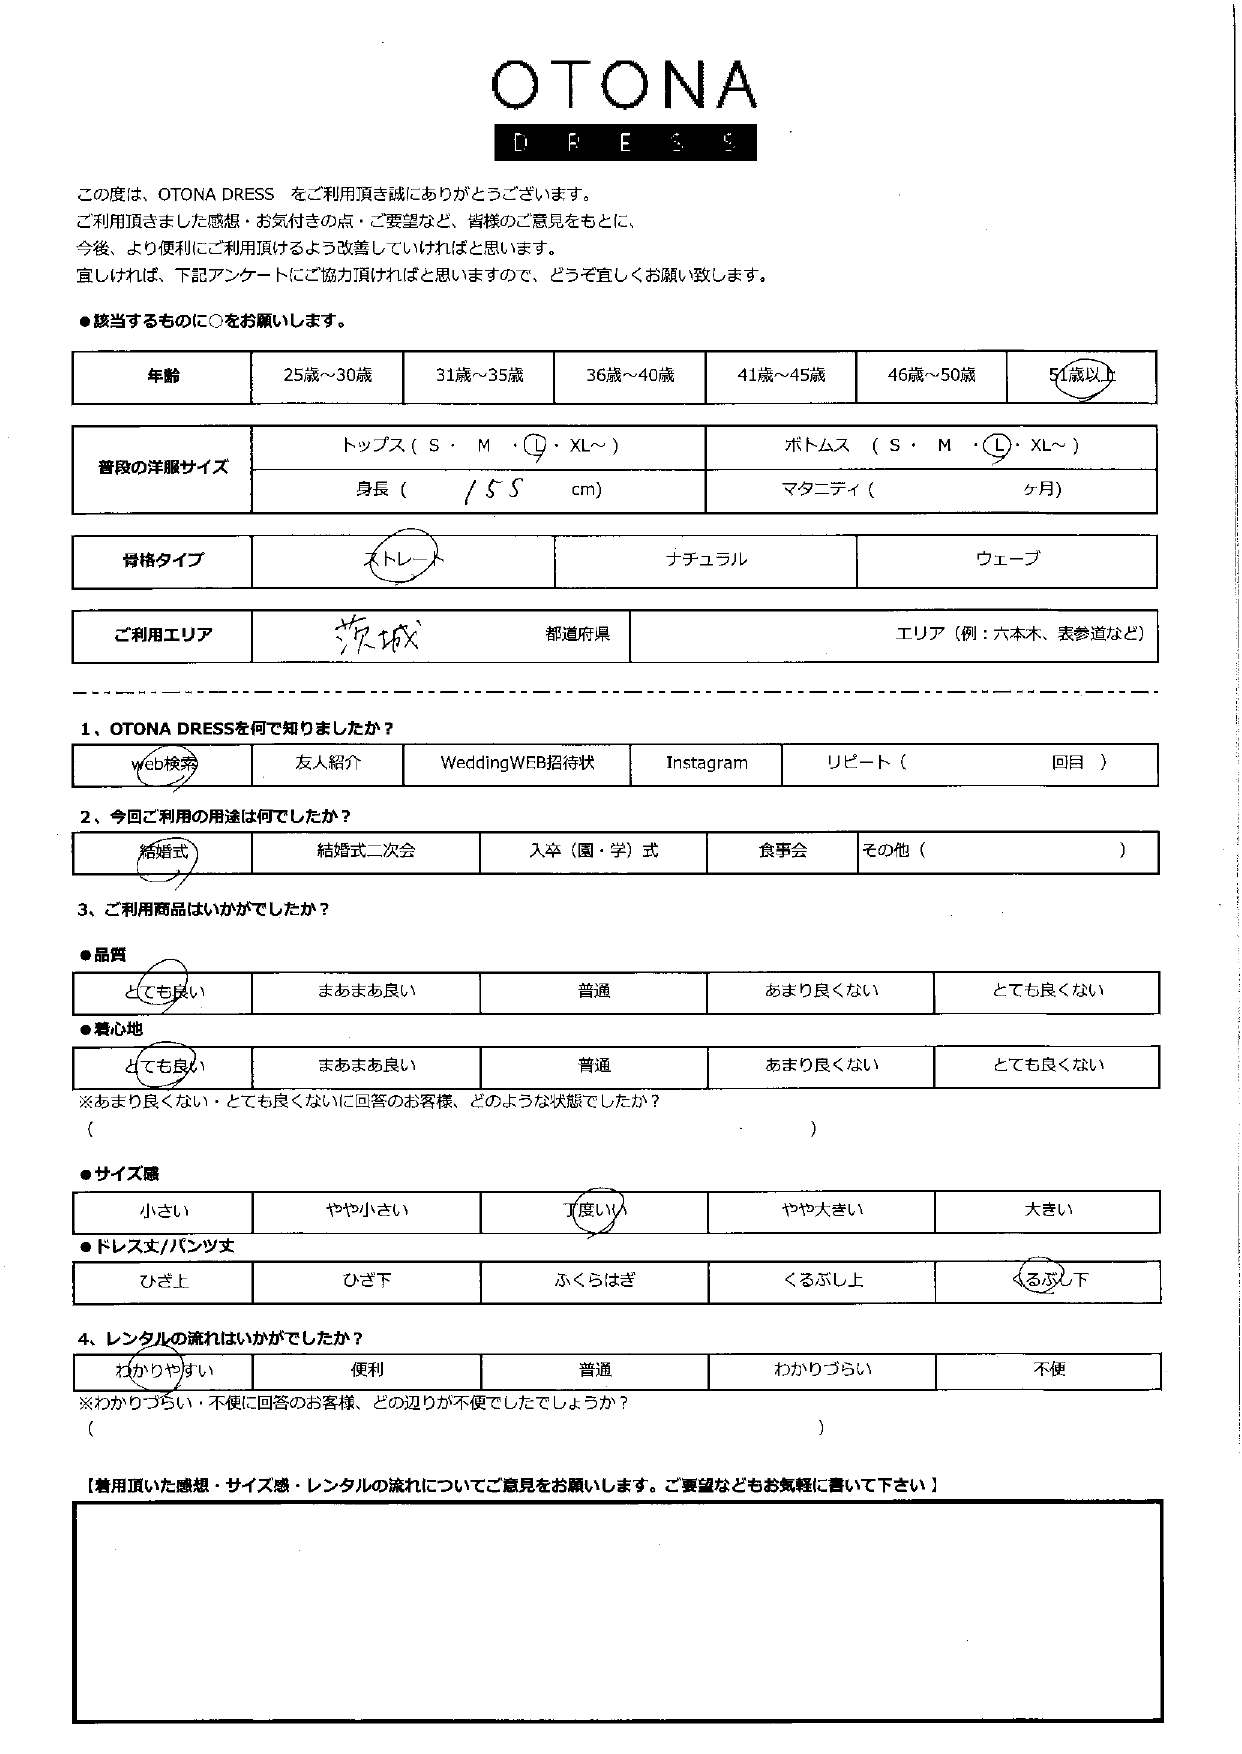 OTONA
DRESS
この度は、OTONA DRESS　をご利用頂き誠にありがとうございます。
ご利用頂きました感想・お気付きの点・ご要望など、皆様のご意見をもとに、
今後、より便利にご利用頂けるよう改善していければと思います。
宜しければ、下記アンケートにご協力頂ければと思いますので、どうぞ宜しくお願い致します。
●該当するものに○をお願いします。
年齢 25歳～30歳 31歳～35歳 36歳～40歳 41歳～45歳 46歳～50歳 51歳以上
普段の洋服サイズ トップス ( S ・ M ・ L ・ XL～ ) ボトムス ( S ・ M ・ L ・ XL～ )
身長 ( 155 cm) マタニティ ( ヶ月)
骨格タイプ ストレート ナチュラル ウェーブ
ご利用エリア 茨城 都道府県 エリア（例：六本木、表参道など）
1、OTONA DRESSを何で知りましたか？
web検索 友人紹介 WeddingWEB招待状 Instagram リピート ( 回目 )
2、今回ご利用の用途は何でしたか？
結婚式 結婚式二次会 入卒（園・学）式 食事会 その他 ( )
3、ご利用商品はいかがでしたか？
●品質
とても良い まあまあ良い 普通 あまり良くない とても良くない
●着心地
とても良い まあまあ良い 普通 あまり良くない とても良くない
※あまり良くない・とても良くないに回答のお客様、どのような状態でしたか？
( )
●サイズ感
小さい やや小さい 丁度いい やや大きい 大きい
●ドレス丈/パンツ丈
ひざ上 ひざ下 ふくらはぎ くるぶし上 くるぶし下
4、レンタルの流れはいかがでしたか？
わかりやすい 便利 普通 わかりづらい 不便
※わかりづらい・不便に回答のお客様、どの辺りが不便でしたでしょうか？
( )
【着用頂いた感想・サイズ感・レンタルの流れについてご意見をお願いします。ご要望などもお気軽に書いて下さい】